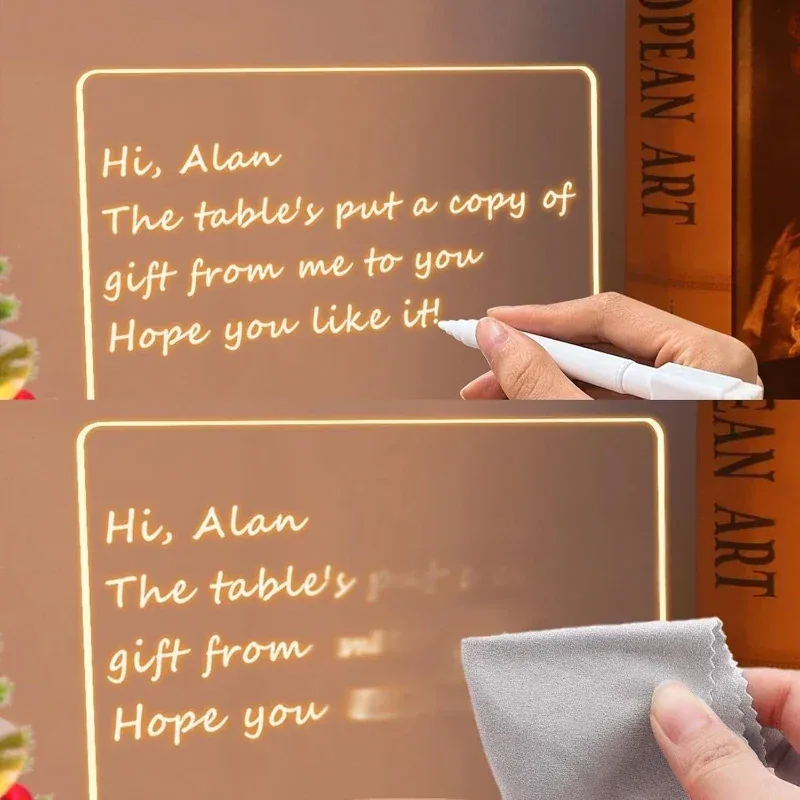 OPEAN ART
Hi, Alan
The table's put a copy of
gift from me to you
Hope you like it!
EAN ART
Hi, Alan
The table's
gift from
Hope you